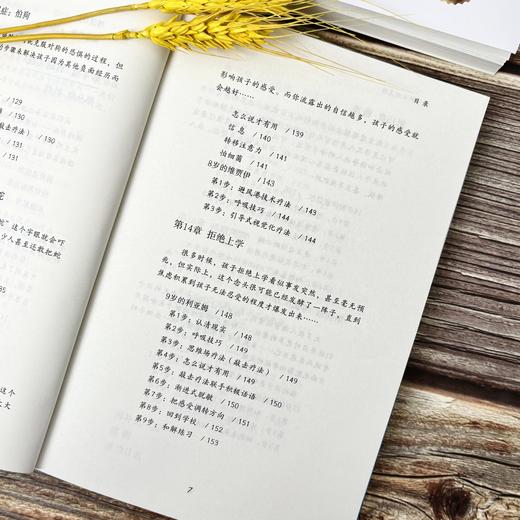 症：怕狗
克服对狗的恐惧的过程，但
步骤来解决孩子因为其他负面经历而
/129
/130
敲击疗法） /130
/131
蛇
蛇”这个字眼就会吓
少人甚至还敢把蛇
这个
大大
目 录
影响孩子的感受。而你流露出的自信越多，孩子的感受就
会越好……
怎么说才有用 /139
信息 /140
转移注意力 /141
怕细菌 /141
8岁的维贾伊 /143
第1步：避风港技术疗法 /143
第2步：呼吸技巧 /144
第3步：引导式视觉化疗法 /144
第14章 拒绝上学
很多时候，孩子拒绝上学看似事发突然，甚至毫无预
兆，但实际上，这个念头很可能已经发酵了一阵子，直到
焦虑积累到孩子无法忍受的程度才爆发出来……
9岁的利亚姆 /148
第1步：认清现实 /148
第2步：呼吸技巧 /149
第3步：思维场疗法（敲击疗法） /149
第4步：怎么说才有用 /149
第5步：敲击疗法联手积极话语 /150
第6步：渐进式脱敏 /150
第7步：把感受调转方向 /151
第8步：回到学校 /152
第9步：和解练习 /153
7